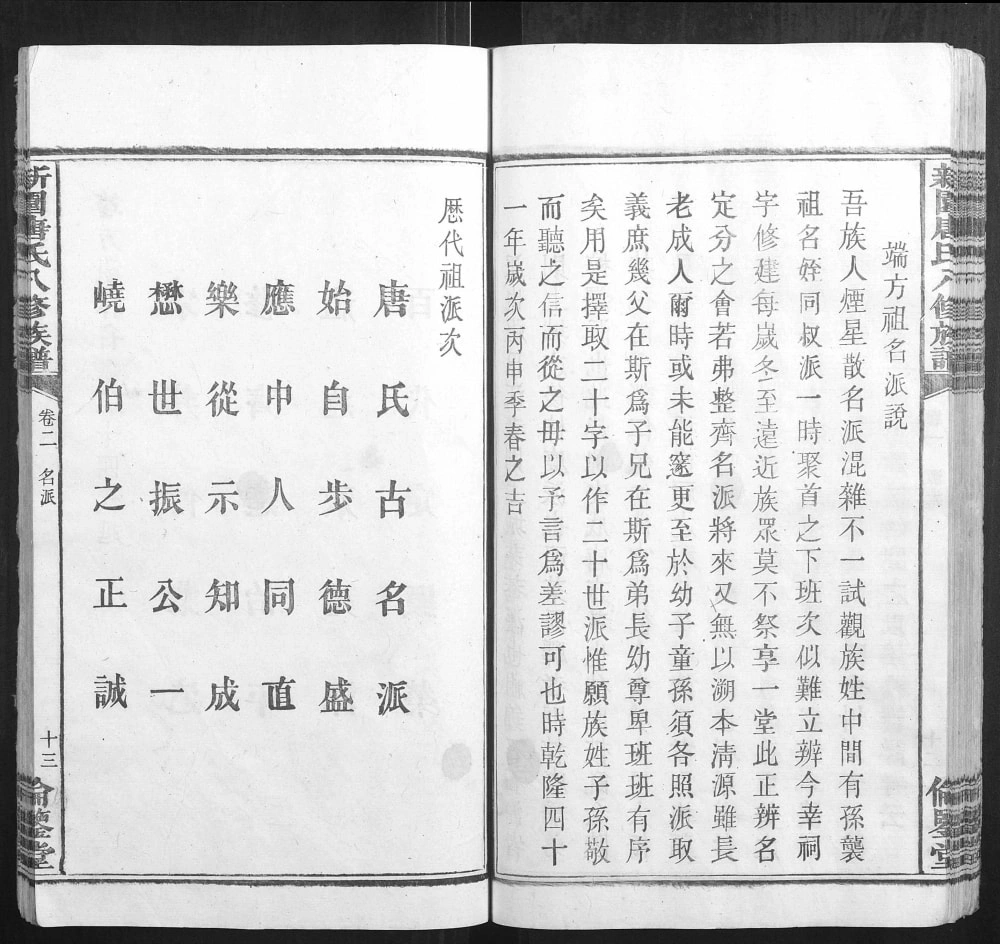 端方祖名派說
吾族人煙星散名派混雜不一試觀族姓中間有孫襲
祖名姪同叔派一時聚首之下班次似難立辨今幸祠
宇修建每歲冬至遠近族眾莫不祭享一堂此正辨名
定分之會若弗整齊名派將來又無以溯本清源雖長
老成人爾時或未能遽更至於幼子童孫須各照派取
義庶幾父在斯爲子兄在斯爲弟長幼尊卑班班有序
矣用是擇取二十字以作二十世派惟願族姓子孫敬
而聽之信而從之毋以予言爲差謬可也時乾隆四十
一年歲次丙申季春之吉
歷代祖派次
唐氏古名派
始自步德盛
應中人同直
樂從示知成
懋世振公一
嶢伯之正誠
新圍唐氏八修族譜
卷二 名派
十三
倫鑒堂